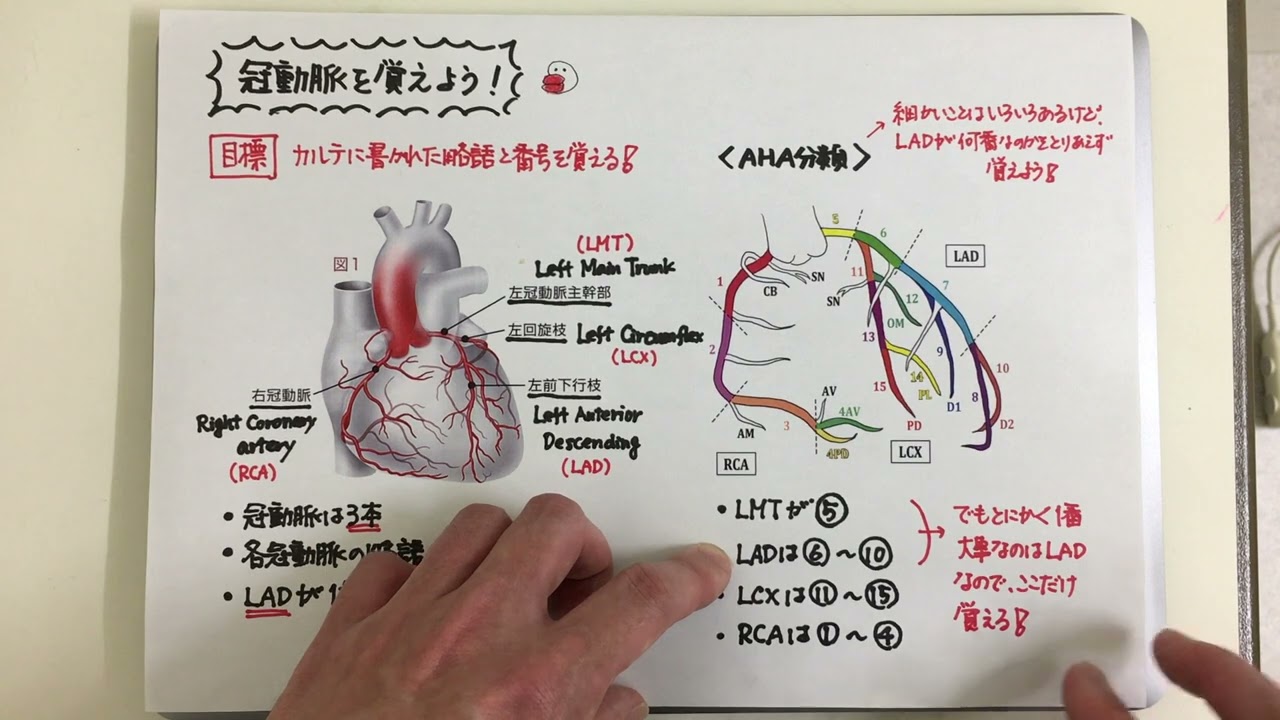 冠動脈を覚えよう!
目標 カルテに書かれた略語と番号を覚える!
図1
(LMT)
Left Main Trunk
左冠動脈主幹部
左回旋枝 Left Circumflex
(LCX)
右冠動脈
Right Coronary
artery
(RCA)
左前下行枝
Left Anterior
Descending
(LAD)
・冠動脈は3本
・各冠動脈の略語
・LADが
<AHA分類>
細かいことはいろいろあるけど、
LADが何番なのかをとりあえず
覚えよう!
5
6
LAD
1
CB
SN
SN
11
12
7
OM
2
13
9
10
14
PL
15
8
D1
D2
AV
4AV
AM
3
4PD
PD
RCA
LCX
・LMTが⑤
LADは⑥〜⑩
・LCXは⑪〜⑮
・RCAは①〜④
でもとにかく1番
大事なのはLAD
なので、ここだけ
覚えろ!